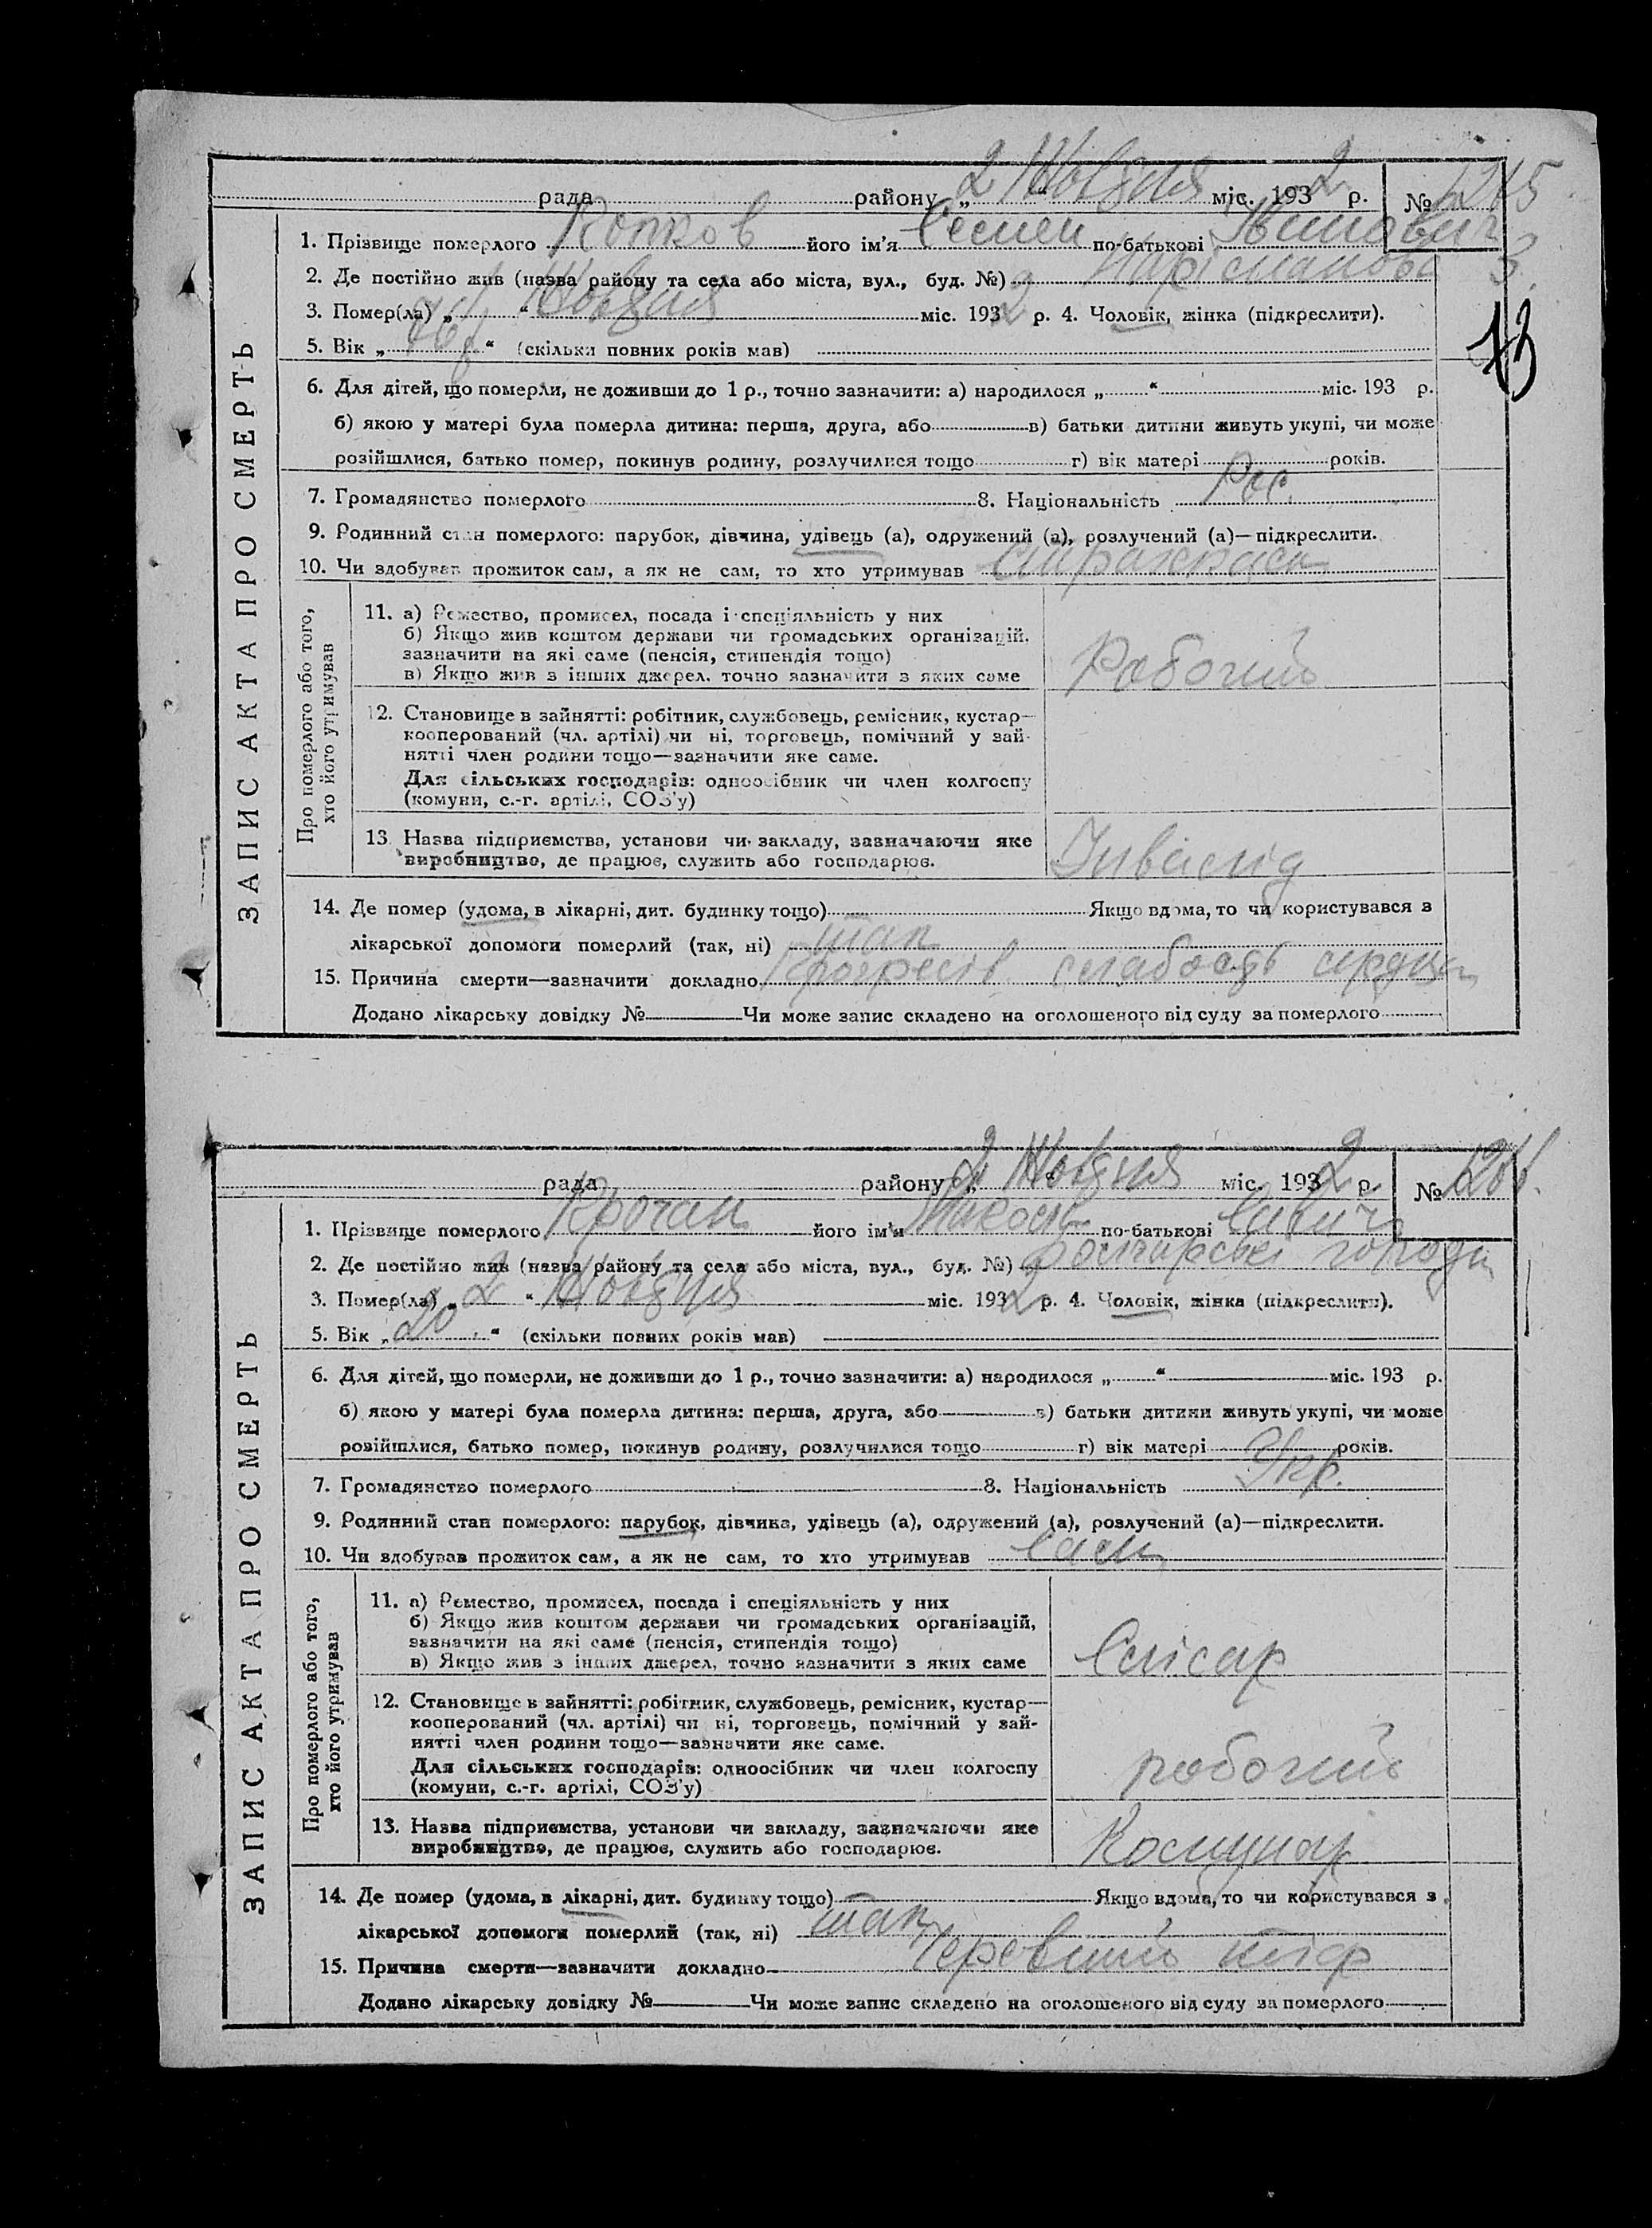 рада району „2“ Жовтня міс. 1932 р. №
1. Прізвище померлого Копков його ім'я Семен по-батькові
2. Де постійно жив (назва району та села або міста, вул., буд. №) Нарімановa 3
3. Помер(ла) „ “ Жовтня міс. 1932 р. 4. Чоловік, жінка (підкреслити).
13
5. Вік „ “ (скільки повних років мав)
6. Для дітей, що померли, не доживши до 1 р., точно зазначити: а) народилося „ “ міс. 193 р.
б) якою у матері була померла дитина: перша, друга, або в) батьки дитини живуть укупі, чи може
розійшлися, батько помер, покинув родину, розлучилися тощо г) вік матері років.
7. Громадянство померлого 8. Національність Рос.
9. Родинний стан померлого: парубок, дівчина, удівець (а), одружений (а), розлучений (а)—підкреслити.
10. Чи здобував прожиток сам, а як не сам, то хто утримував Страхкаса
ЗАПИС АКТА ПРО СМЕРТЬ
Про померлого або того,
хто його утримував
11. а) Ремество, промисел, посада і спеціяльність у них
б) Якщо жив коштом держави чи громадських організацій.
зазначити на які саме (пенсія, стипендія тощо)
в) Якщо жив з інших джерел. точно зазначити з яких саме
Робочий
12. Становище в зайнятті: робітник, службовець, ремісник, кустар—
кооперований (чл. артілі) чи ні, торговець, помічний у зай-
нятті член родини тощо—зазначити яке саме.
Для сільських господарів: одноосібник чи член колгоспу
(комуни, с.-г. артілі, СОЗ'у)
13. Назва підприємства, установи чи закладу, зазначаючи яке
виробництво, де працює, служить або господарює.
Інвалід
14. Де помер (удома, в лікарні, дит. будинку тощо) Якщо вдома, то чи користувався з
лікарської допомоги померлий (так, ні) так
15. Причина смерти—зазначити докладно Прогресів. слабость сердца
Додано лікарську довідку № Чи може запис складено на оголошеного від суду за померлого
рада району „2“ Жовтня міс. 1932 р. №
1. Прізвище померлого Крочак його ім'я Микола по-батькові
2. Де постійно жив (назва району та села або міста, вул., буд. №) Болгарські городи
3. Помер(ла) „2“ Жовтня міс. 1932 р. 4. Чоловік, жінка (підкреслити).
5. Вік „20“ (скільки повних років мав)
6. Для дітей, що померли, не доживши до 1 р., точно зазначити: а) народилося „ “ міс. 193 р.
б) якою у матері була померла дитина: перша, друга, або в) батьки дитини живуть укупі, чи може
розійшлися, батько помер, покинув родину, розлучилися тощо г) вік матері років.
7. Громадянство померлого 8. Національність Укр.
9. Родинний стан померлого: парубок, дівчина, удівець (а), одружений (а), розлучений (а)—підкреслити.
10. Чи здобував прожиток сам, а як не сам, то хто утримував Сам
ЗАПИС АКТА ПРО СМЕРТЬ
Про померлого або того,
хто його утримував
11. а) Ремество, промисел, посада і спеціяльність у них
б) Якщо жив коштом держави чи громадських організацій,
зазначити на які саме (пенсія, стипендія тощо)
в) Якщо жив з інших джерел, точно зазначити з яких саме
Слісар
12. Становище в зайнятті: робітник, службовець, ремісник, кустар—
кооперований (чл. артілі) чи ні, торговець, помічний у зай-
нятті член родини тощо—зазначити яке саме.
Для сільських господарів: одноосібник чи член колгоспу
(комуни, с.-г. артілі, СОЗ'у)
робочий
13. Назва підприємства, установи чи закладу, зазначаючи яке
виробництво, де працює, служить або господарює.
Комунар
14. Де помер (удома, в лікарні, дит. будинку тощо) Якщо вдома, то чи користувався з
лікарської допомоги померлий (так, ні) так
15. Причина смерти—зазначити докладно Черевний тіф
Додано лікарську довідку № Чи може запис складено на оголошеного від суду за померлого